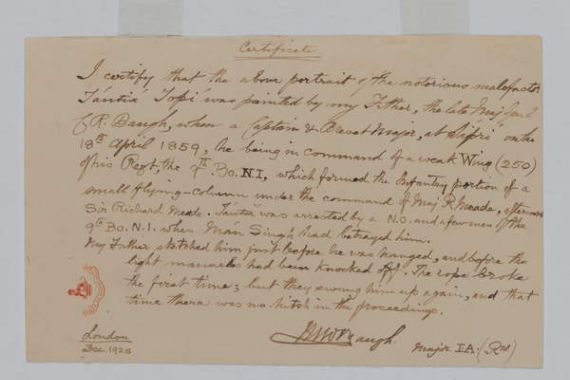 Certificate
I certify that the above portrait of the notorious malefactor
Tántia Topi was painted by my Father, the late Maj Genl
F.R. Baugh, when a Captain & Brevet Major, at Sipri on the
18th April 1859, he being in command of a weak Wing (250)
of his Regt, the 9th Bo. N.I., which formed the Infantry portion of a
small flying-column under the command of Maj R Meade, afterwards
Sir Richard Meade. Tantia was arrested by a N.O. and a few men of the
9th Bo. N.I. when Man Singh had betrayed him.
My Father sketched him just before he was hanged, and before the
light manacles had been knocked off. The rope broke
the first time; but they swung him up again, and that
time there was no hitch in the proceedings.
Baugh
Major I.A. (Red)
London
Dec. 1928